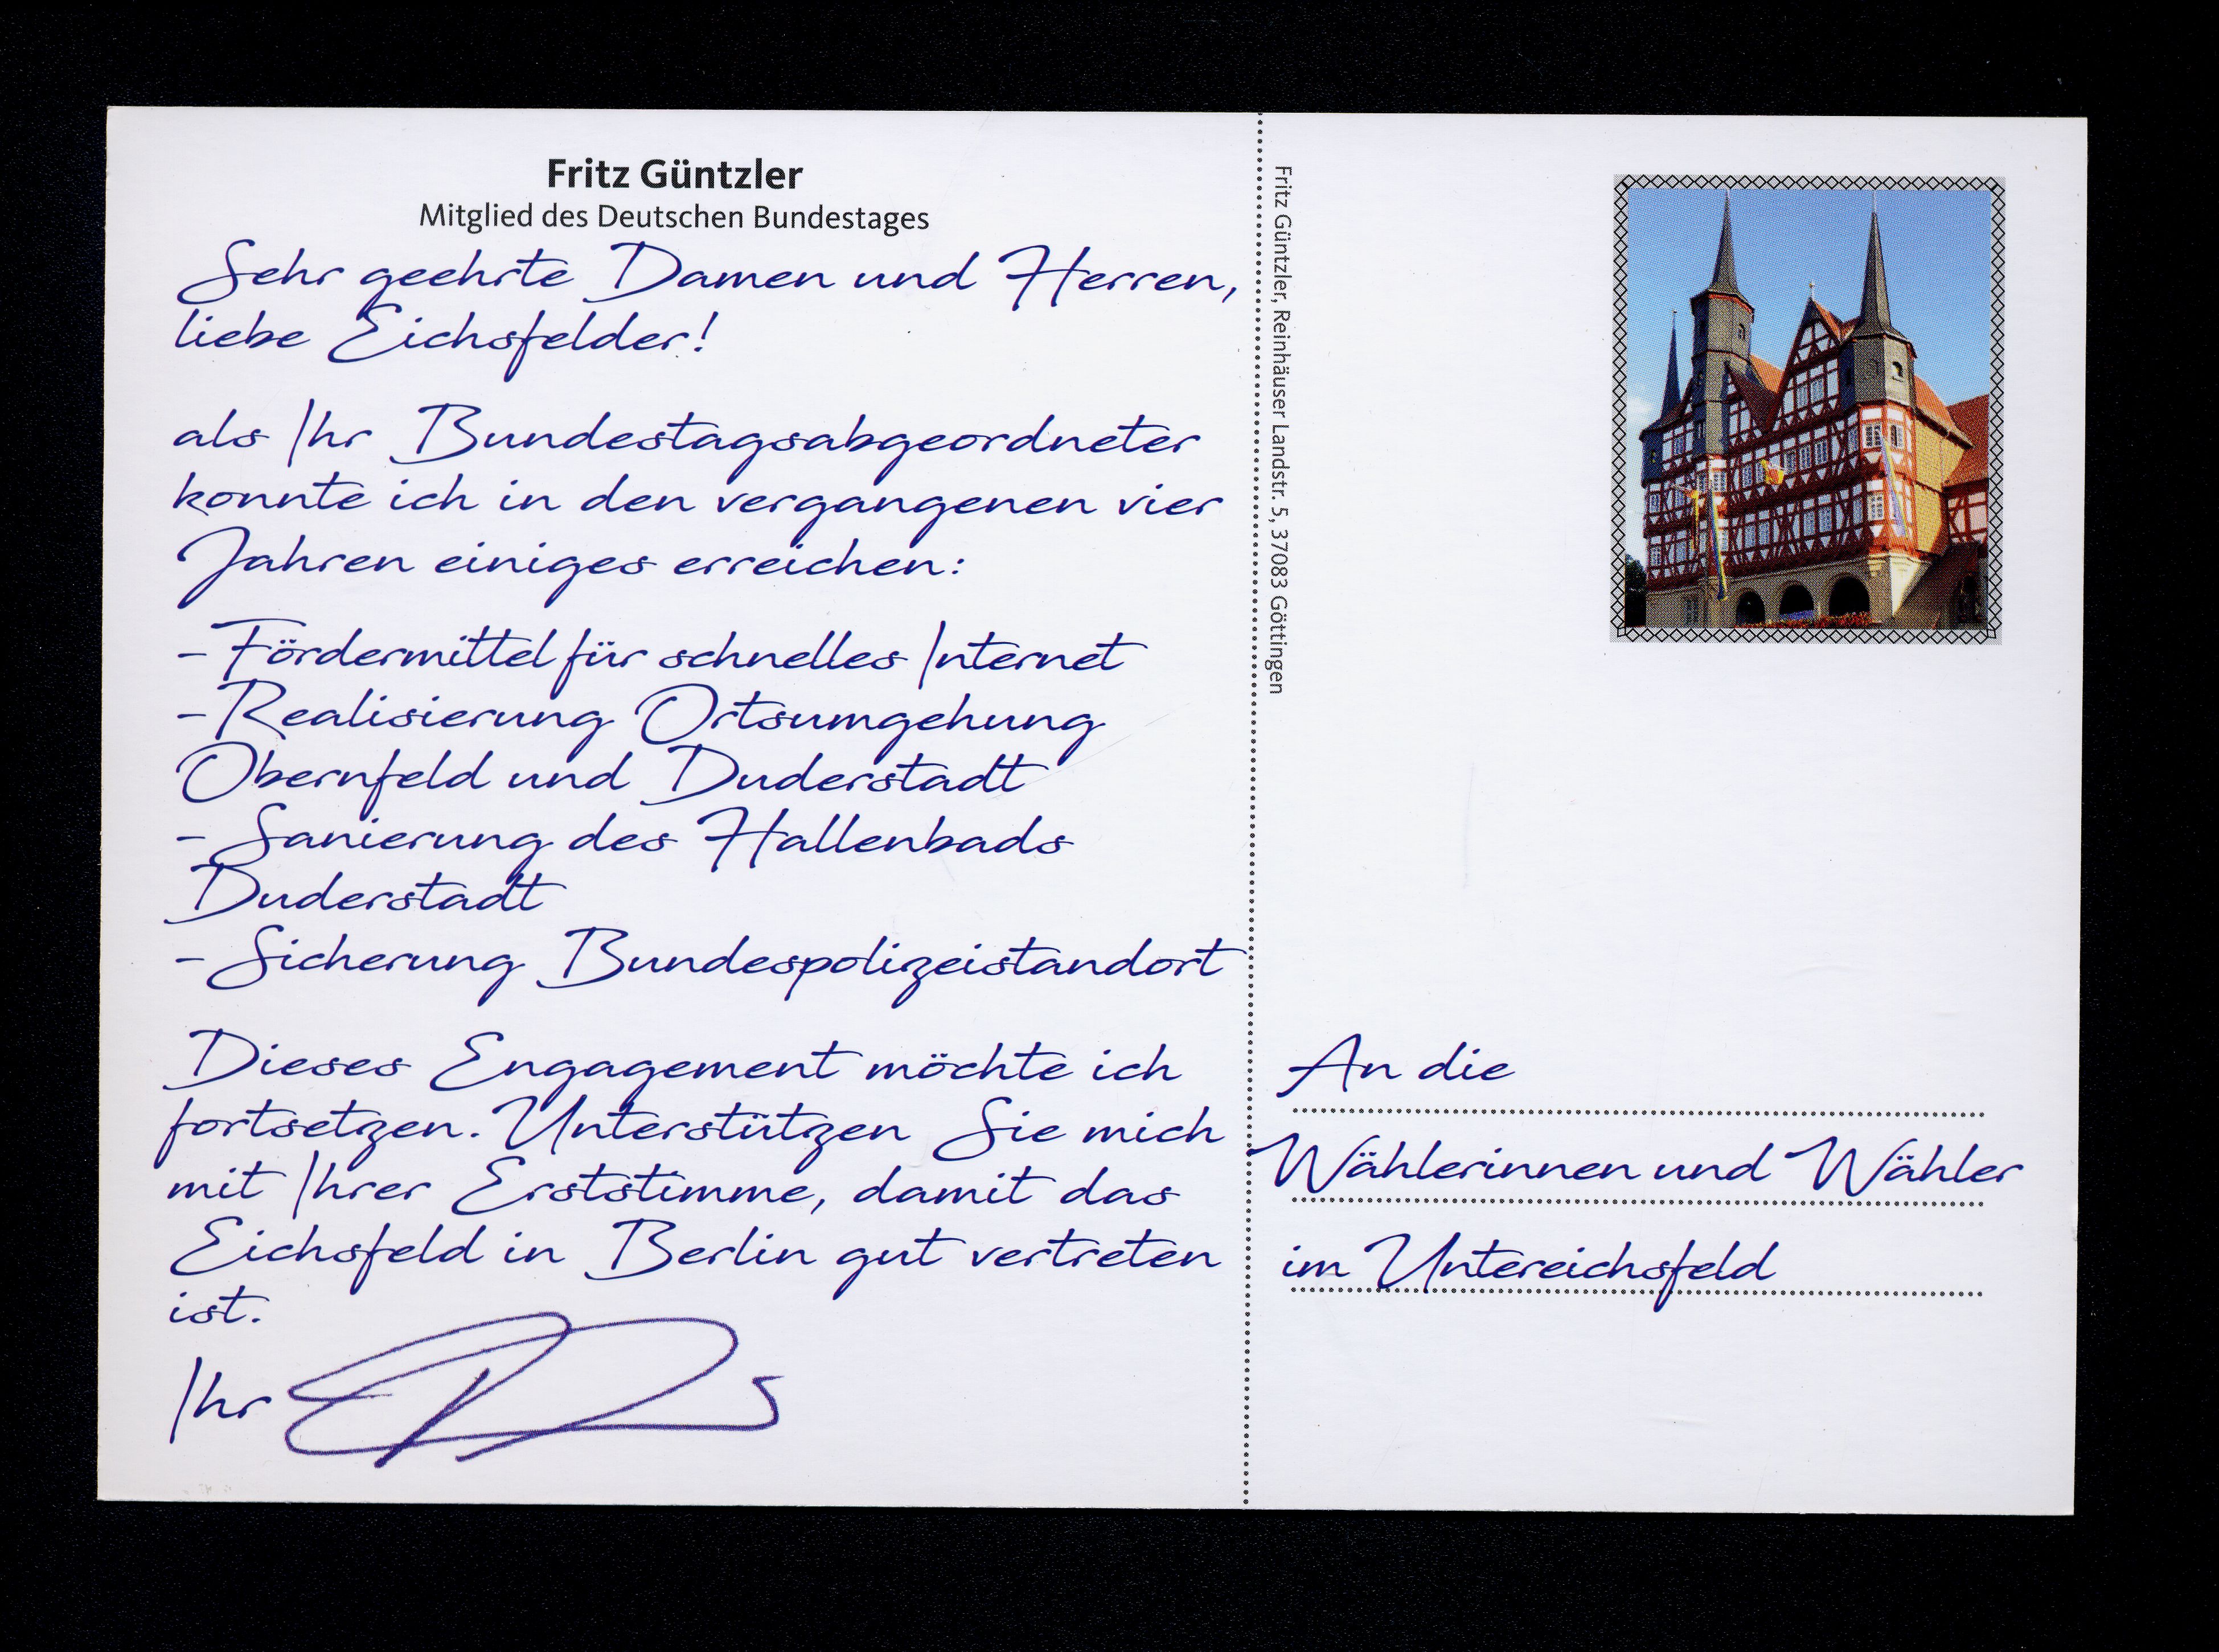 Fritz Güntzler
Mitglied des Deutschen Bundestages
Sehr geehrte Damen und Herren,
liebe Eichsfelder!
als Ihr Bundestagsabgeordneter
konnte ich in den vergangenen vier
Jahren einiges erreichen:
- Fördermittel für schnelles Internet
- Realisierung Ortsumgehung
Obernfeld und Duderstadt
- Sanierung des Hallenbads
Duderstadt
- Sicherung Bundespolizeistandort
Dieses Engagement möchte ich
fortsetzen. Unterstützen Sie mich
mit Ihrer Erststimme, damit das
Eichsfeld in Berlin gut vertreten
ist.
Ihr
Fritz Güntzler, Reinhäuser Landstr. 5, 37083 Göttingen
An die
Wählerinnen und Wähler
im Untereichsfeld